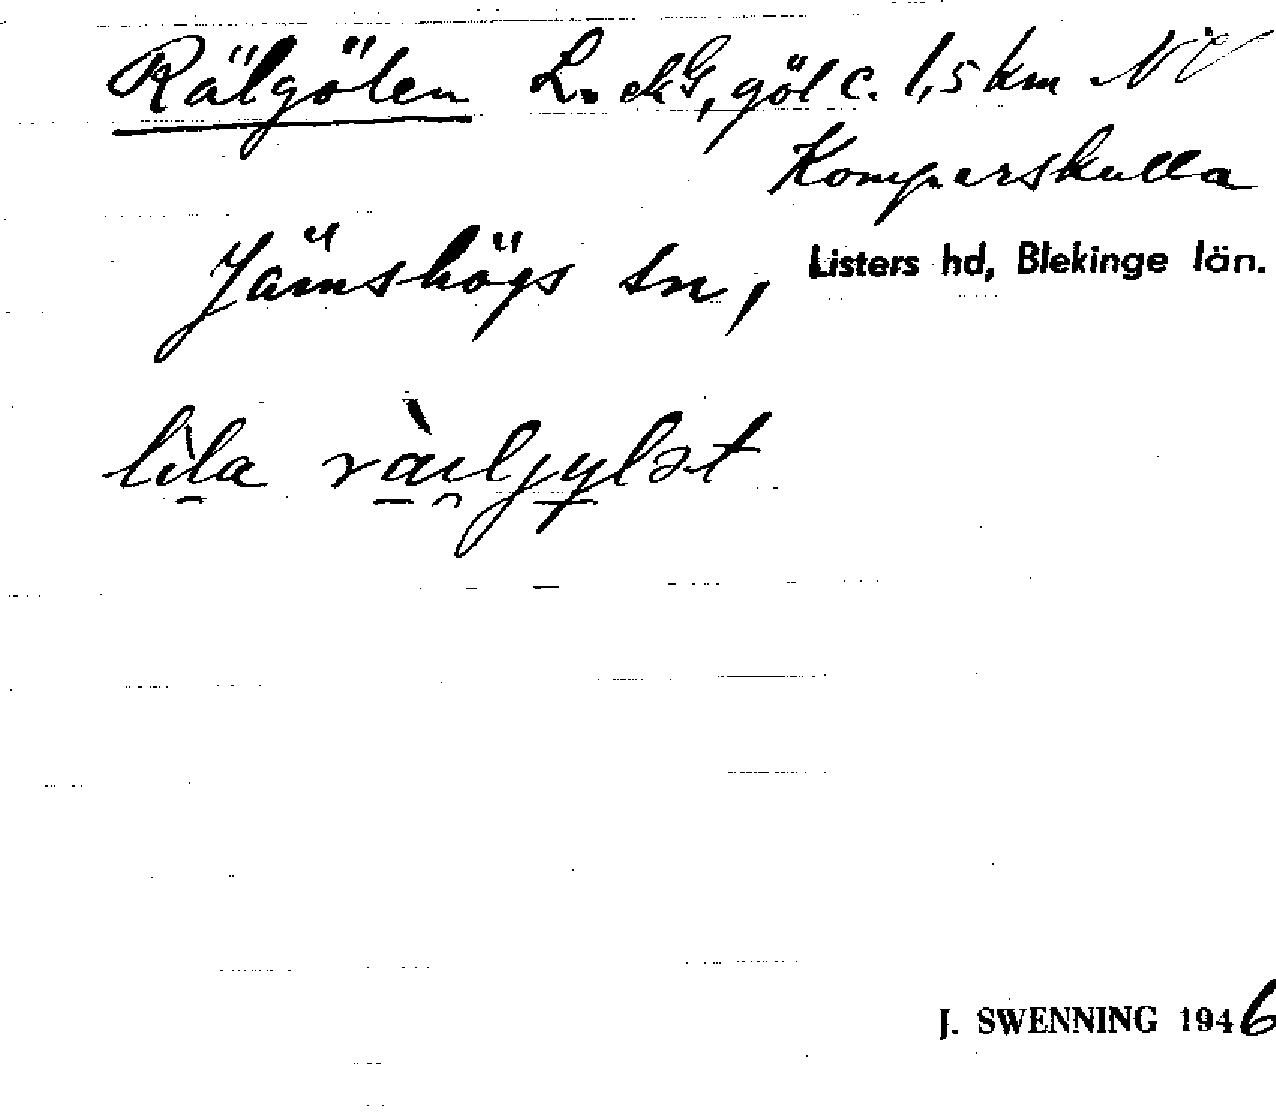 Rälgölen L. ekG, göl c. 1,5 km NV
Komperskulla
Jämshögs sn, Listers hd, Blekinge län.
lìla ràiljylət
J. SWENNING 1946